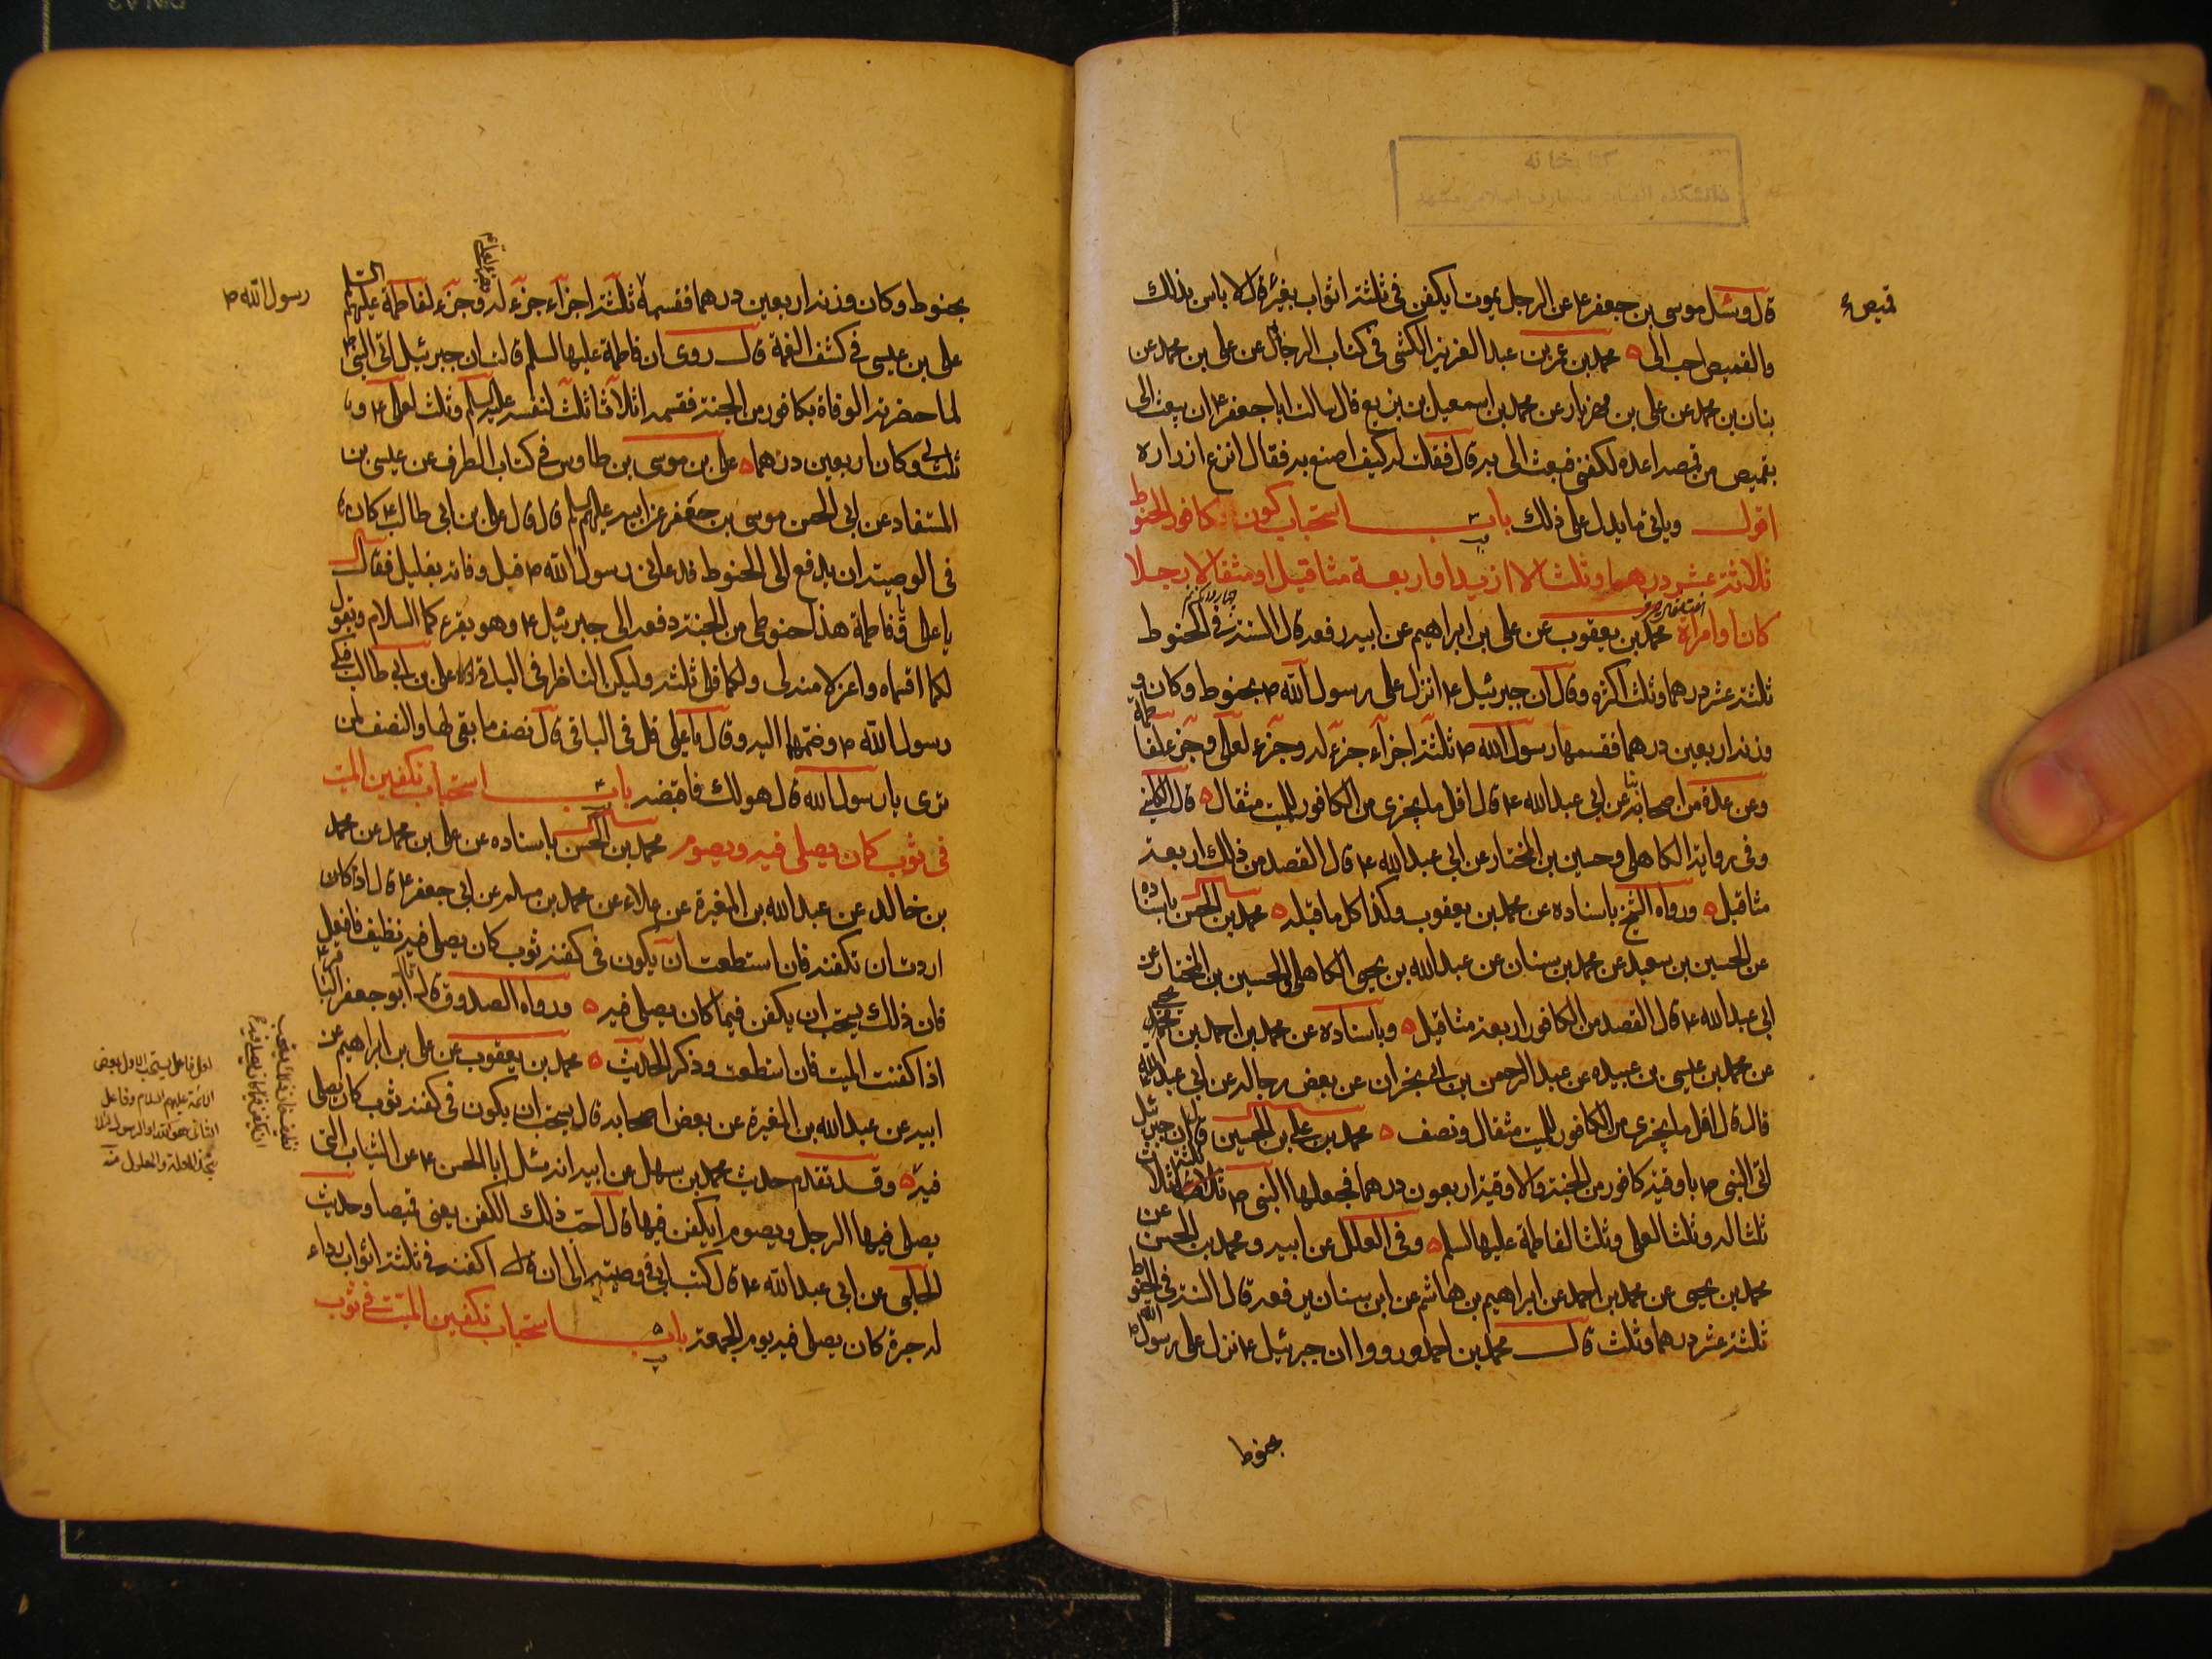 كتابخانه
دانشكده الهيات و معارف اسلامي مشهد
قميص ع
قال وسئل موسى بن جعفر ع عن الرجل يموت ايكفن في ثلثة اثواب بغير قال لا باس بذلك
والقميص احب الى ه محمد بن عمر بن عبد العزيز الكشى فى كتاب الرجال عن على بن محمد عن
بنان بن محمد عن على بن مهزيار عن محمد بن اسمعيل بن بزيع قال سالت ابا جعفر ع ان يبعث الى
بقميص من قمصه اعده لكفنى فبعث الى به قال فقلت له كيف اصنع به فقال انزع ازراره
اقول وياتى ما يدل على ذلك باب استحباب كون كافور الحنوط
ثلاثة عشر درهما وثلثا لا ازيد او اربعة مثاقيل او مثقالا رجلا
كان او امراة محمد بن يعقوب عن على بن ابراهيم عن ابيه رفعه قال السنة فى الحنوط
ثلثة عشر درهما وثلث اكثره وقال ان جبرئيل ع انزل على رسول الله ص بحنوط وكان
وزنه اربعين درهما فقسمها رسول الله ص ثلثة اجزاء جزء له وجزء لعلى وجزء لفاطمة
وعن عدة من اصحابنا عن ابى عبد الله ع قال اقل ما يجزى من الكافور للميت مثقال ه قال الكلينى
وفى رواية الكاهلى وحسين بن المختار عن ابى عبد الله ع قال القصد من ذلك اربعة
مثاقيل ه ورواه الشيخ باسناده عن محمد بن يعقوب وكذا كل ما قبله ه محمد بن الحسن باسناده
عن الحسين بن سعيد عن محمد بن سنان عن عبد الله بن يحيى الكاهلى والحسين بن المختار عن
ابى عبد الله ع قال القصد من الكافور اربعة مثاقيل ه وباسناده عن محمد بن احمد بن يحيى
عن محمد بن عيسى بن عبيده عن عبد الرحمن بن ابى نجران عن بعض رجاله عن ابى عبد الله
قال قال اقل ما يجزى من الكافور للميت مثقال ونصف ه محمد بن على بن الحسين قال ان جبرئيل
اتى النبى ص باوقية كافور من الجنة والاوقية اربعون درهما فجعلها النبى ص ثلثة اثلاث
ثلثا له وثلثا لعلى وثلثا لفاطمة عليها السلم ه وفى العلل عن ابيه ومحمد بن الحسن عن
محمد بن يحيى عن محمد بن احمد عن ابراهيم بن هاشم عن ابن سنان يرفعه قال السنة فى الحنوط
ثلثة عشر درهما وثلث قال محمد بن احمد ورووا ان جبرئيل ع نزل على رسول الله ص
بحنوط
رسول الله ص
بحنوط وكان وزنه اربعين درهما فقسمه ثلثة اجزاء جزء له وجزء لفاطمة عليهم السلم
على بن عيسى فى كشف الغمة قال روى ان فاطمة عليها السلم قالت ان جبرئيل اتى النبى ص
لما حضرته الوفاة بكافور من الجنة فقسمه اثلاثا ثلث لنفسه عليه السلم وثلث لعلى ع و
ثلث لى وكان اربعين درهما ه على بن موسى بن طاوس فى كتاب الطرف عن عيسى بن
المستفاد عن ابى الحسن موسى بن جعفر عن ابيه عليهم السلم قال قال على بن ابى طالب ع كان
فى الوصية ان يدفع الى الحنوط فدعانى رسول الله ص قبل وفاته بقليل فقال
يا على ويا فاطمة هذا حنوطى من الجنة دفعه الى جبرئيل ع وهو يقرءكما السلام ويقول
لكما اقسماه واعزلا منه لى ولكما قال ثلثه وليكن الناظر فى الباقى على بن ابى طالب فبكى
رسول الله ص وضمهما اليه وقال يا على قل فى الباقى قال نصف ما بقى لها والنصف لمن
ترى يا رسول الله قال هو لك فاقبضه باب استحباب تكفين الميت
فى ثوب كان يصلى فيه ويصوم محمد بن الحسن باسناده عن على بن محمد عن محمد
بن خالد عن عبد الله بن المغيرة عن علاء عن محمد بن مسلم عن ابى جعفر ع قال اذا كان
اردت ان تكفنه فان استطعت ان يكون فى كفنه ثوب كان يصلى فيه نظيف فافعل
فان ذلك يستحب ان يكفن فيما كان يصلى فيه ه ورواه الصدوق قال قال ابو جعفر الباقر ع
اذا كفنت الميت فان استطعت وذكر الحديث ه محمد بن يعقوب عن على بن ابراهيم عن
ابيه عن عبد الله بن المغيرة عن بعض اصحابه قال يستحب ان يكون فى كفنه ثوب كان يصلى
فيه ه وقد تقدم حديث محمد بن سهل عن ابيه انه سئل ابا الحسن ع عن الثياب التى
يصلى فيها الرجل ويصوم ايكفن فيها قال احب ذلك الكفن يعنى قميصا وحديث
الحلبى عن ابى عبد الله ع قال كتب ابى فى وصيته الى ان قال اكفنه فى ثلثة اثواب رداء
له حبرة كان يصلى فيه يوم الجمعة باب استحباب تكفين الميت فى ثوب